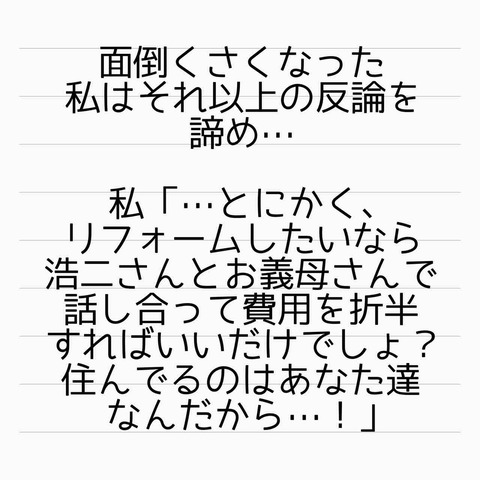 面倒くさくなった
私はそれ以上の反論を
諦め…
私「…とにかく、
リフォームしたいなら
浩二さんとお義母さんで
話し合って費用を折半
すればいいだけでしょ？
住んでるのはあなた達
なんだから…！」